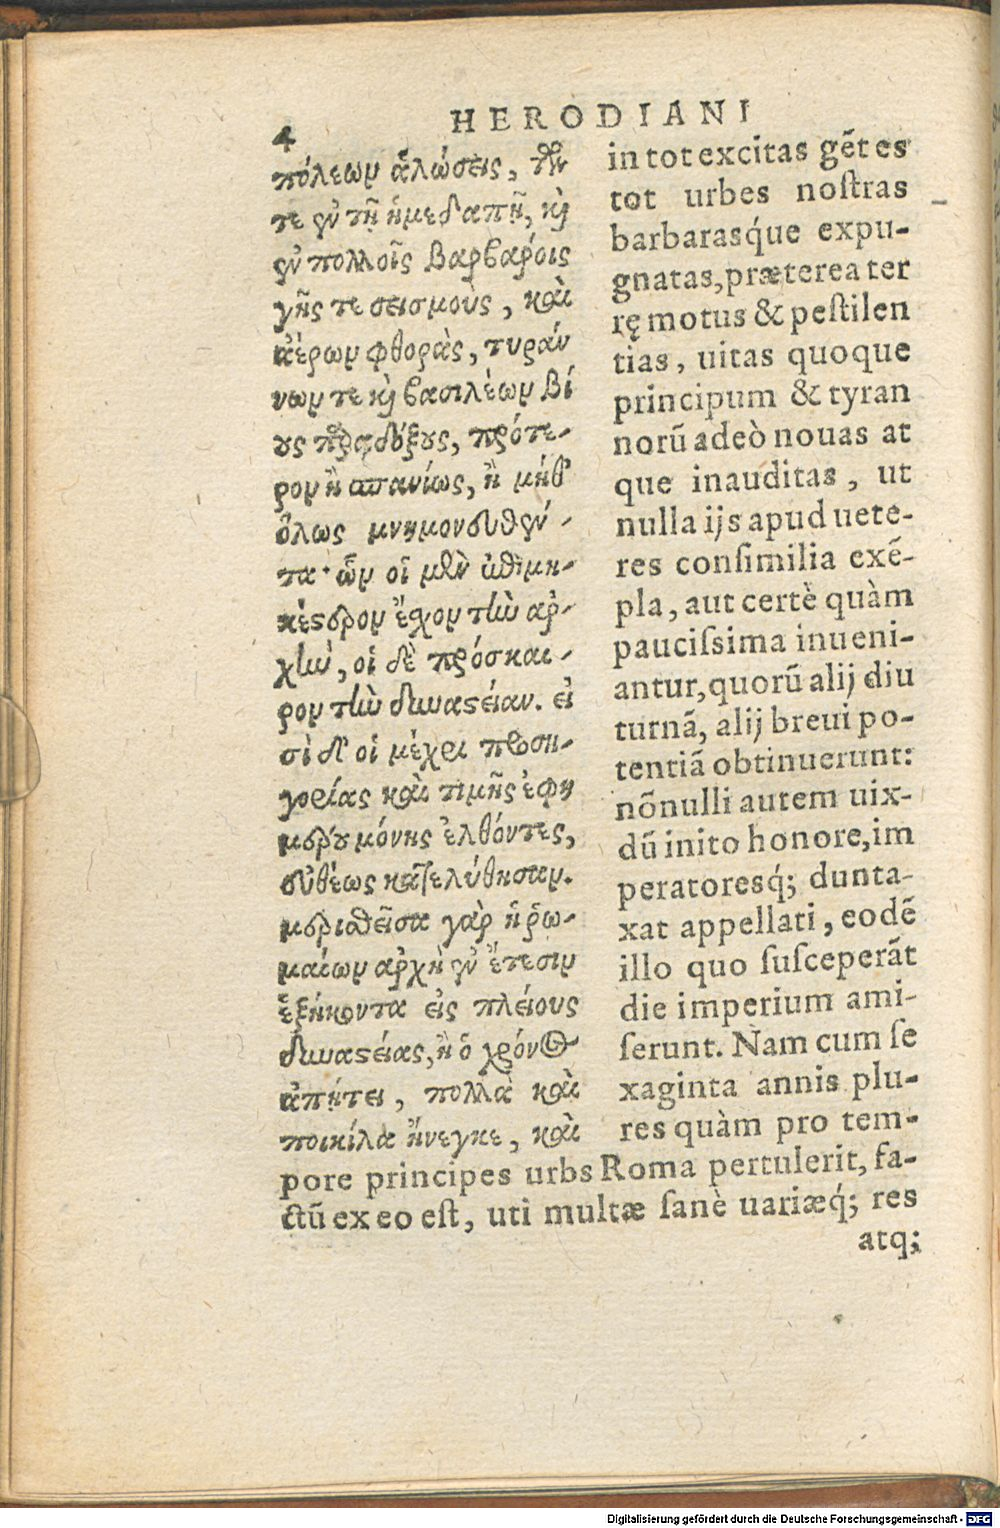 4
HERODIANI
πόλεων ἁλώσεις, τῶν
τε ἐν τῇ ἡμεδαπῇ, κὶ
ἐν πολλοῖς βαρβάροις
γῆς τε σεισμοὺς, καὶ
ἀέρων φθορὰς, τυράν
νων τε κὶ βασιλέων βί
ους παραδόξους, πρότε-
ρον ἢ σπανίως, ἢ μήθ'
ὅλως μνημονευθέν-
τα· ὧν οἱ μὲν ἐπιμη-
κέστερον ἔχον τὴν ἀρ-
χὴν, οἱ δὲ πρόσκαι-
ρον τὴν δυναστείαν. εἰ
σὶ δ' οἱ μέχρι προση-
γορίας καὶ τιμῆς ἐφη
μέρου μόνης ἐλθόντες,
εὐθέως κατελύθησαν.
μερισθεῖσα γὰρ ἡ ῥω-
μαίων ἀρχὴ ἐν ἔτεσιν
ἑξήκοντα εἰς πλείους
δυναστείας, ἢ ὁ χρόνος
ἀπῄτει, πολλὰ καὶ
ποικίλα ἤνεγκε, καὶ
in tot excitas gẽtes
tot urbes nostras
barbarasq́ue expu-
gnatas, præterea ter
rę motus & pestilen
tias, uitas quoque
principum & tyran
norũ adeò nouas at
que inauditas, ut
nulla ijs apud uete-
res consimilia exẽ-
pla, aut certè quàm
paucissima inueni-
antur, quorũ alij diu
turnã, alij breui po-
tentiã obtinuerunt:
nõnulli autem uix-
dũ inito honore, im
peratoresq́; dunta-
xat appellati, eodẽ
illo quo susceperãt
die imperium ami-
serunt. Nam cum se
xaginta annis plu-
res quàm pro tem-
pore principes urbs Roma pertulerit, fa-
ctũ ex eo est, uti multæ sanè uariæq́; res
atq;
Digitalisierung gefördert durch die Deutsche Forschungsgemeinschaft - DFG